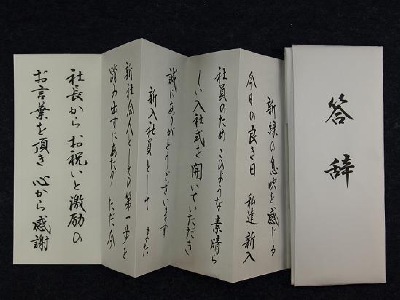 答辞
新緑の息吹を感じる
今日の良き日 私達新入
社員のためにこのような素晴ら
しい入社式を開いていただき
誠にありがとうございます
新入社員として
新社会人としての第一歩を
踏み出すにあたり ただ今
社長からお祝いと激励の
お言葉を頂き 心から感謝